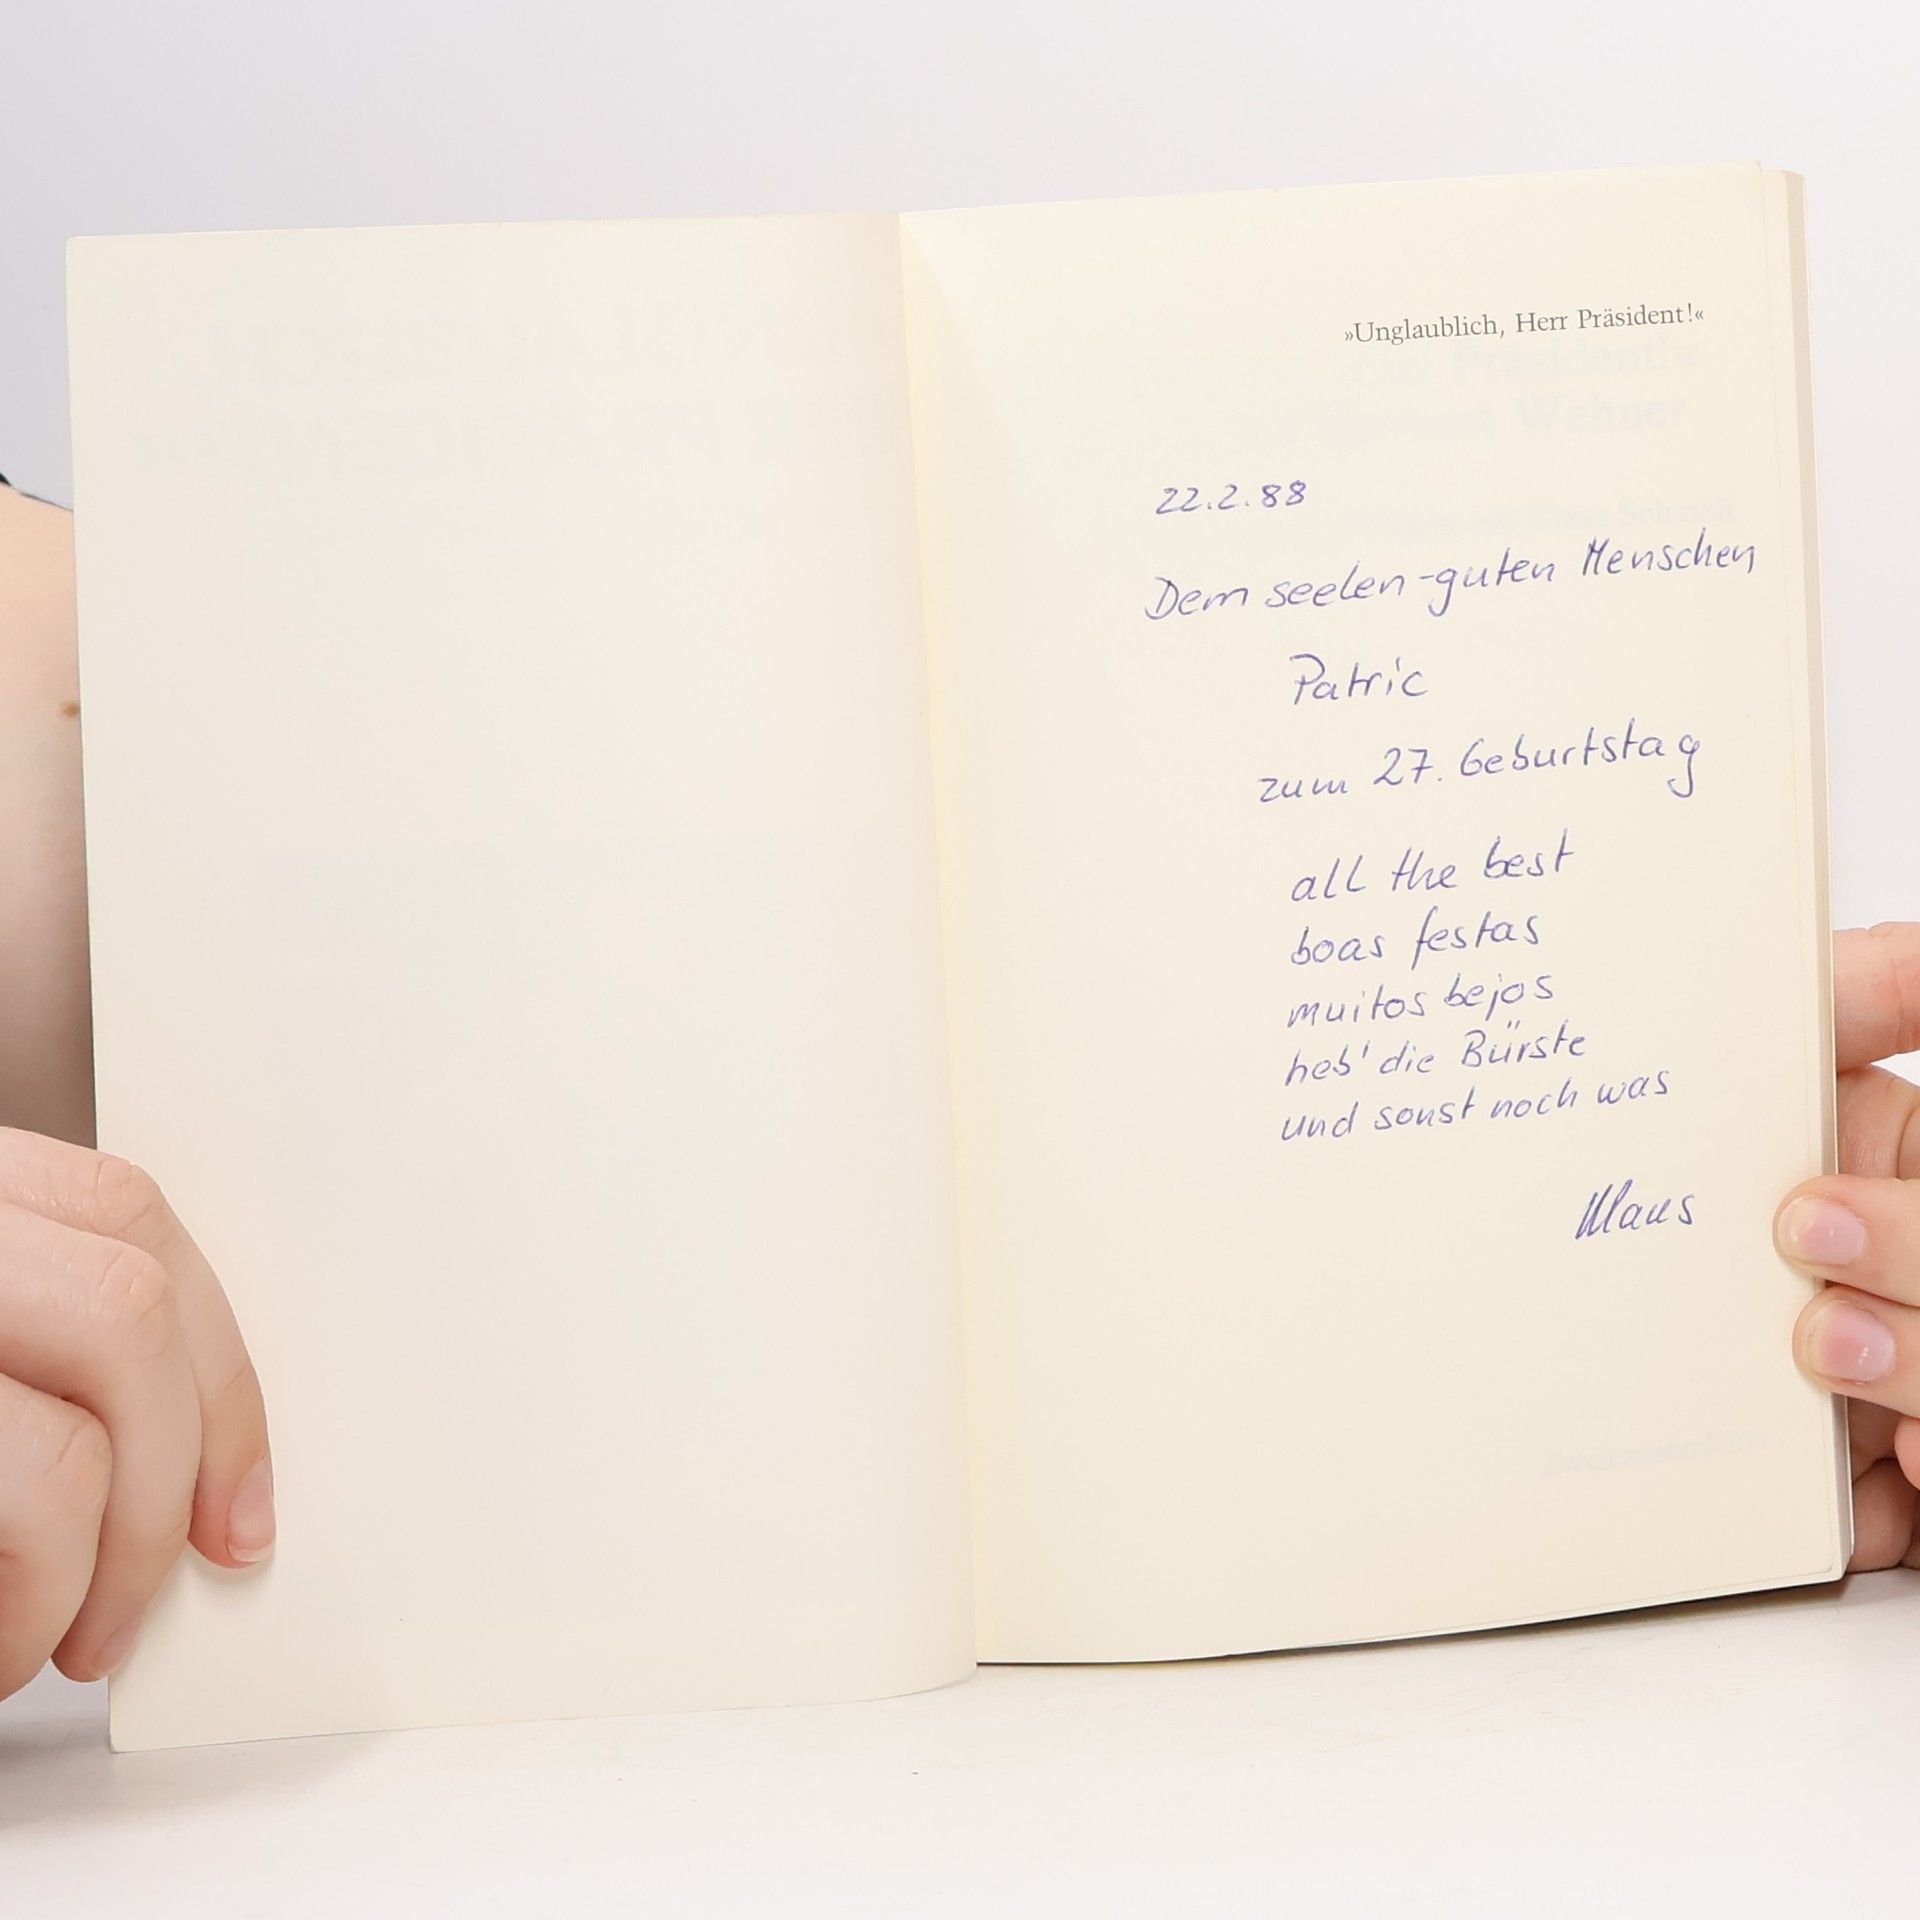 »Unglaublich, Herr Präsident!«
22.2.88
Dem seelen-guten Menschen
Patric
zum 27. Geburtstag
all the best
boas festas
muitos bejos
heb' die Bürste
und sonst noch was
Klaus